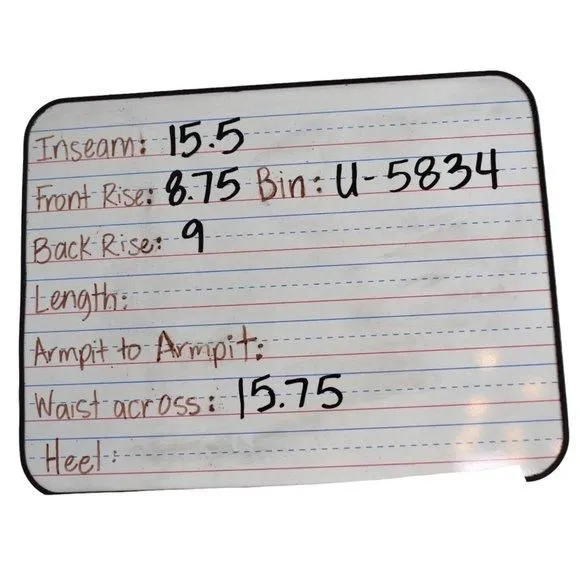 Inseam: 15.5
Front Rise: 8.75 Bin: U-5834
Back Rise: 9
Length:
Armpit to Armpit:
Waist across: 15.75
Heel: